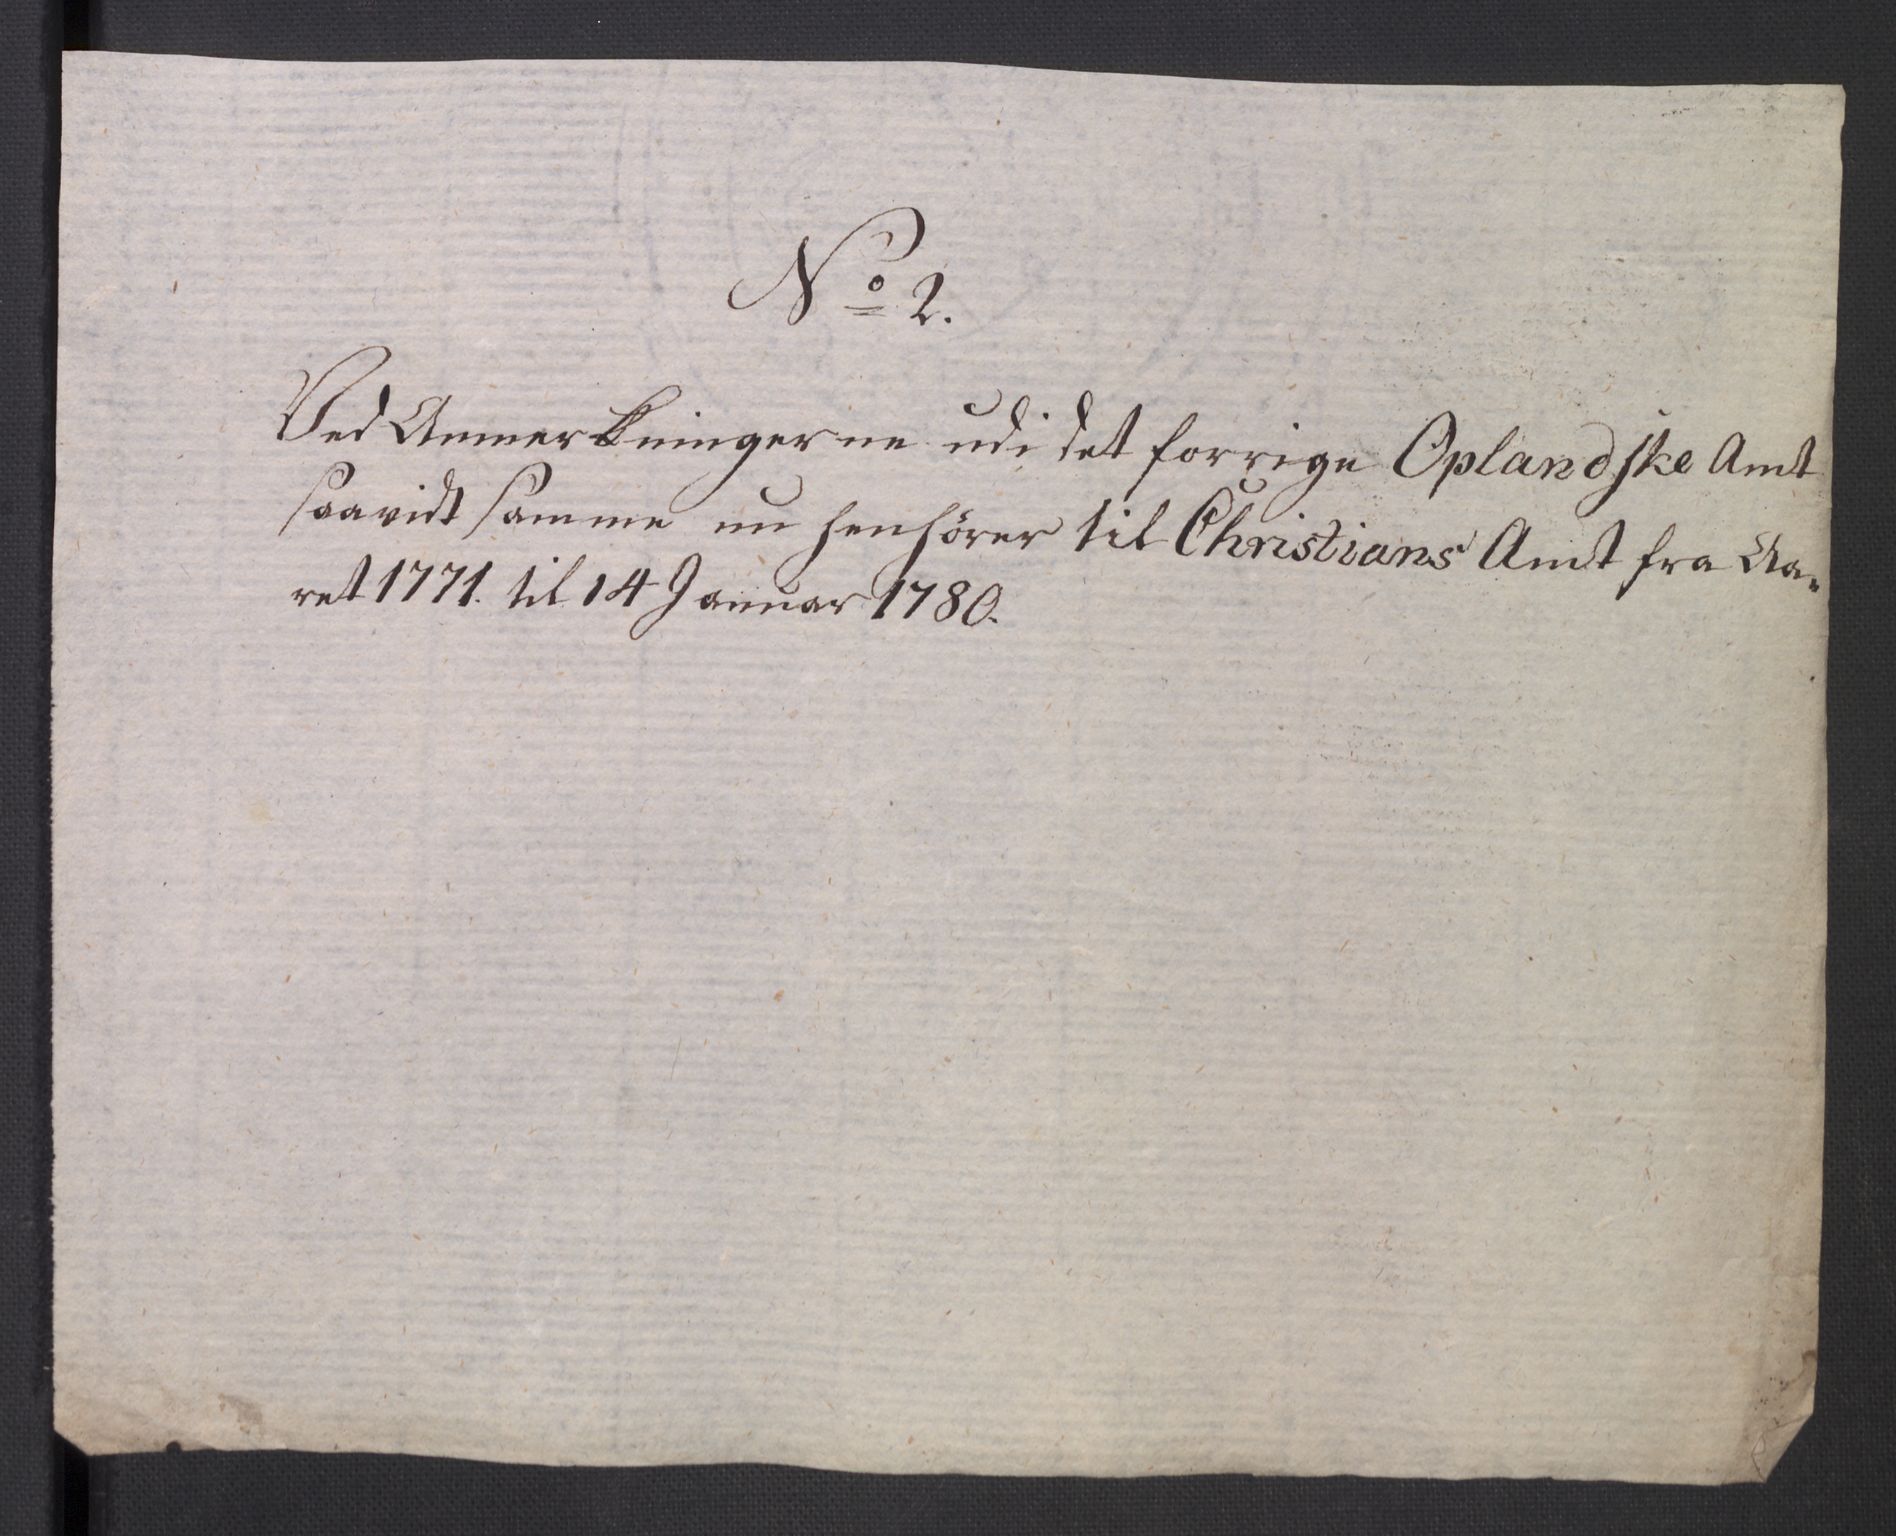 No 2.
Ved Anmerkningerne udi det forrige Oplandske Amt
saavidt samme nu henhörer til Christians Amt fra Aa-
ret 1771. til 14 Januar 1780.